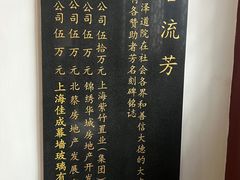 流芳
泽道院在社会各界和善信大德的大
将各赞助者芳名刻碑铭志
公司 伍拾万元 上海紫竹置业(集团
公司 伍万元 锦绣华城房地产开
公司 伍万元 北蔡房地产发展
伍万元 上海佳成幕墙玻璃有